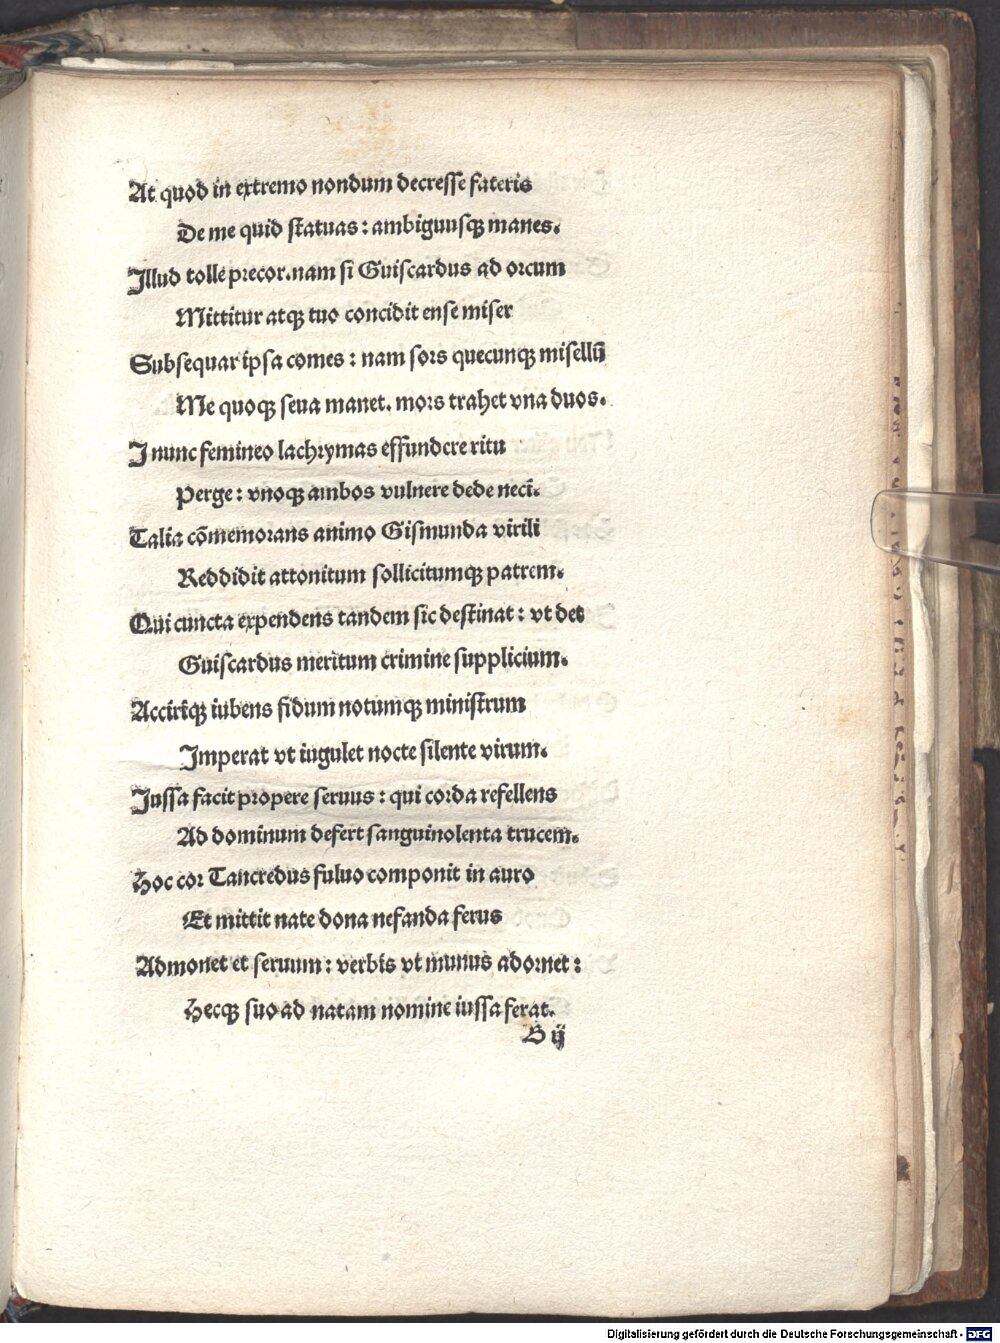 At quod in extremo nondum decresse fateris
De me quid statuas : ambiguusqꝫ manes.
Illud tolle precor.nam si Guiscardus ad orcum
Mittitur atqꝫ tuo concidit ense miser
Subsequar ipsa comes : nam sors quecunqꝫ misellū
Me quoqꝫ seua manet. mors trahet vna duos.
I nunc femineo lachrymas effundere ritu
Perge : vnoqꝫ ambos vulnere dede neci.
Talia cōmemorans animo Gismunda virili
Reddidit attonitum sollicitumqꝫ patrem.
Qui cuncta expendens tandem sic destinat : vt det
Guiscardus meritum crimine supplicium.
Acciriqꝫ iubens fidum notumqꝫ ministrum
Imperat vt iugulet nocte silente virum.
Jussa facit propere seruus : qui corda refellens
Ad dominum defert sanguinolenta trucem.
Hoc cor Tancredus fuluo componit in auro
Et mittit nate dona nefanda ferus
Admonet et seruum : verbis vt munus adornet :
Hecqꝫ suo ad natam nomine iussa ferat.
B ij
Digitalisierung gefördert durch die Deutsche Forschungsgemeinschaft - DFG